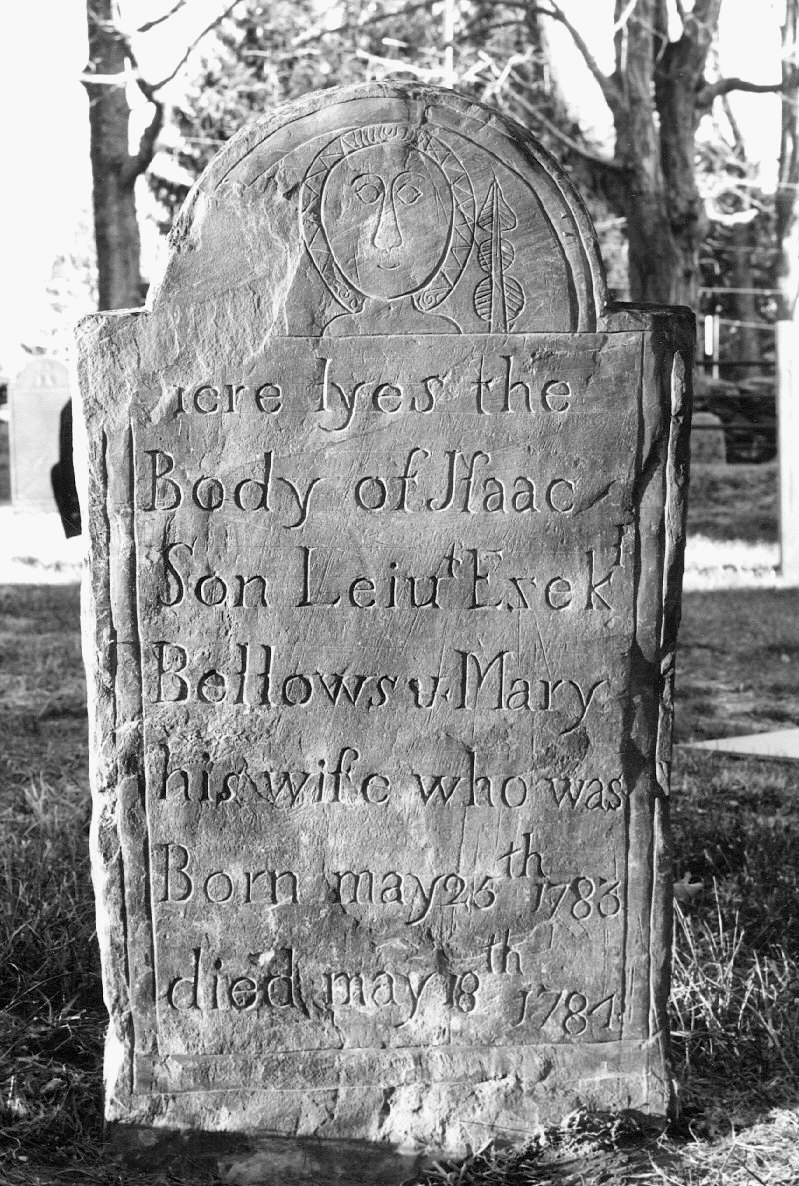 icre lyes the
Body of Isaac
Son Leiuᵗ Ezekˡ
Bellows & Mary
his wife who was
Born may 25ᵗʰ 1783
died may 18ᵗʰ 1784